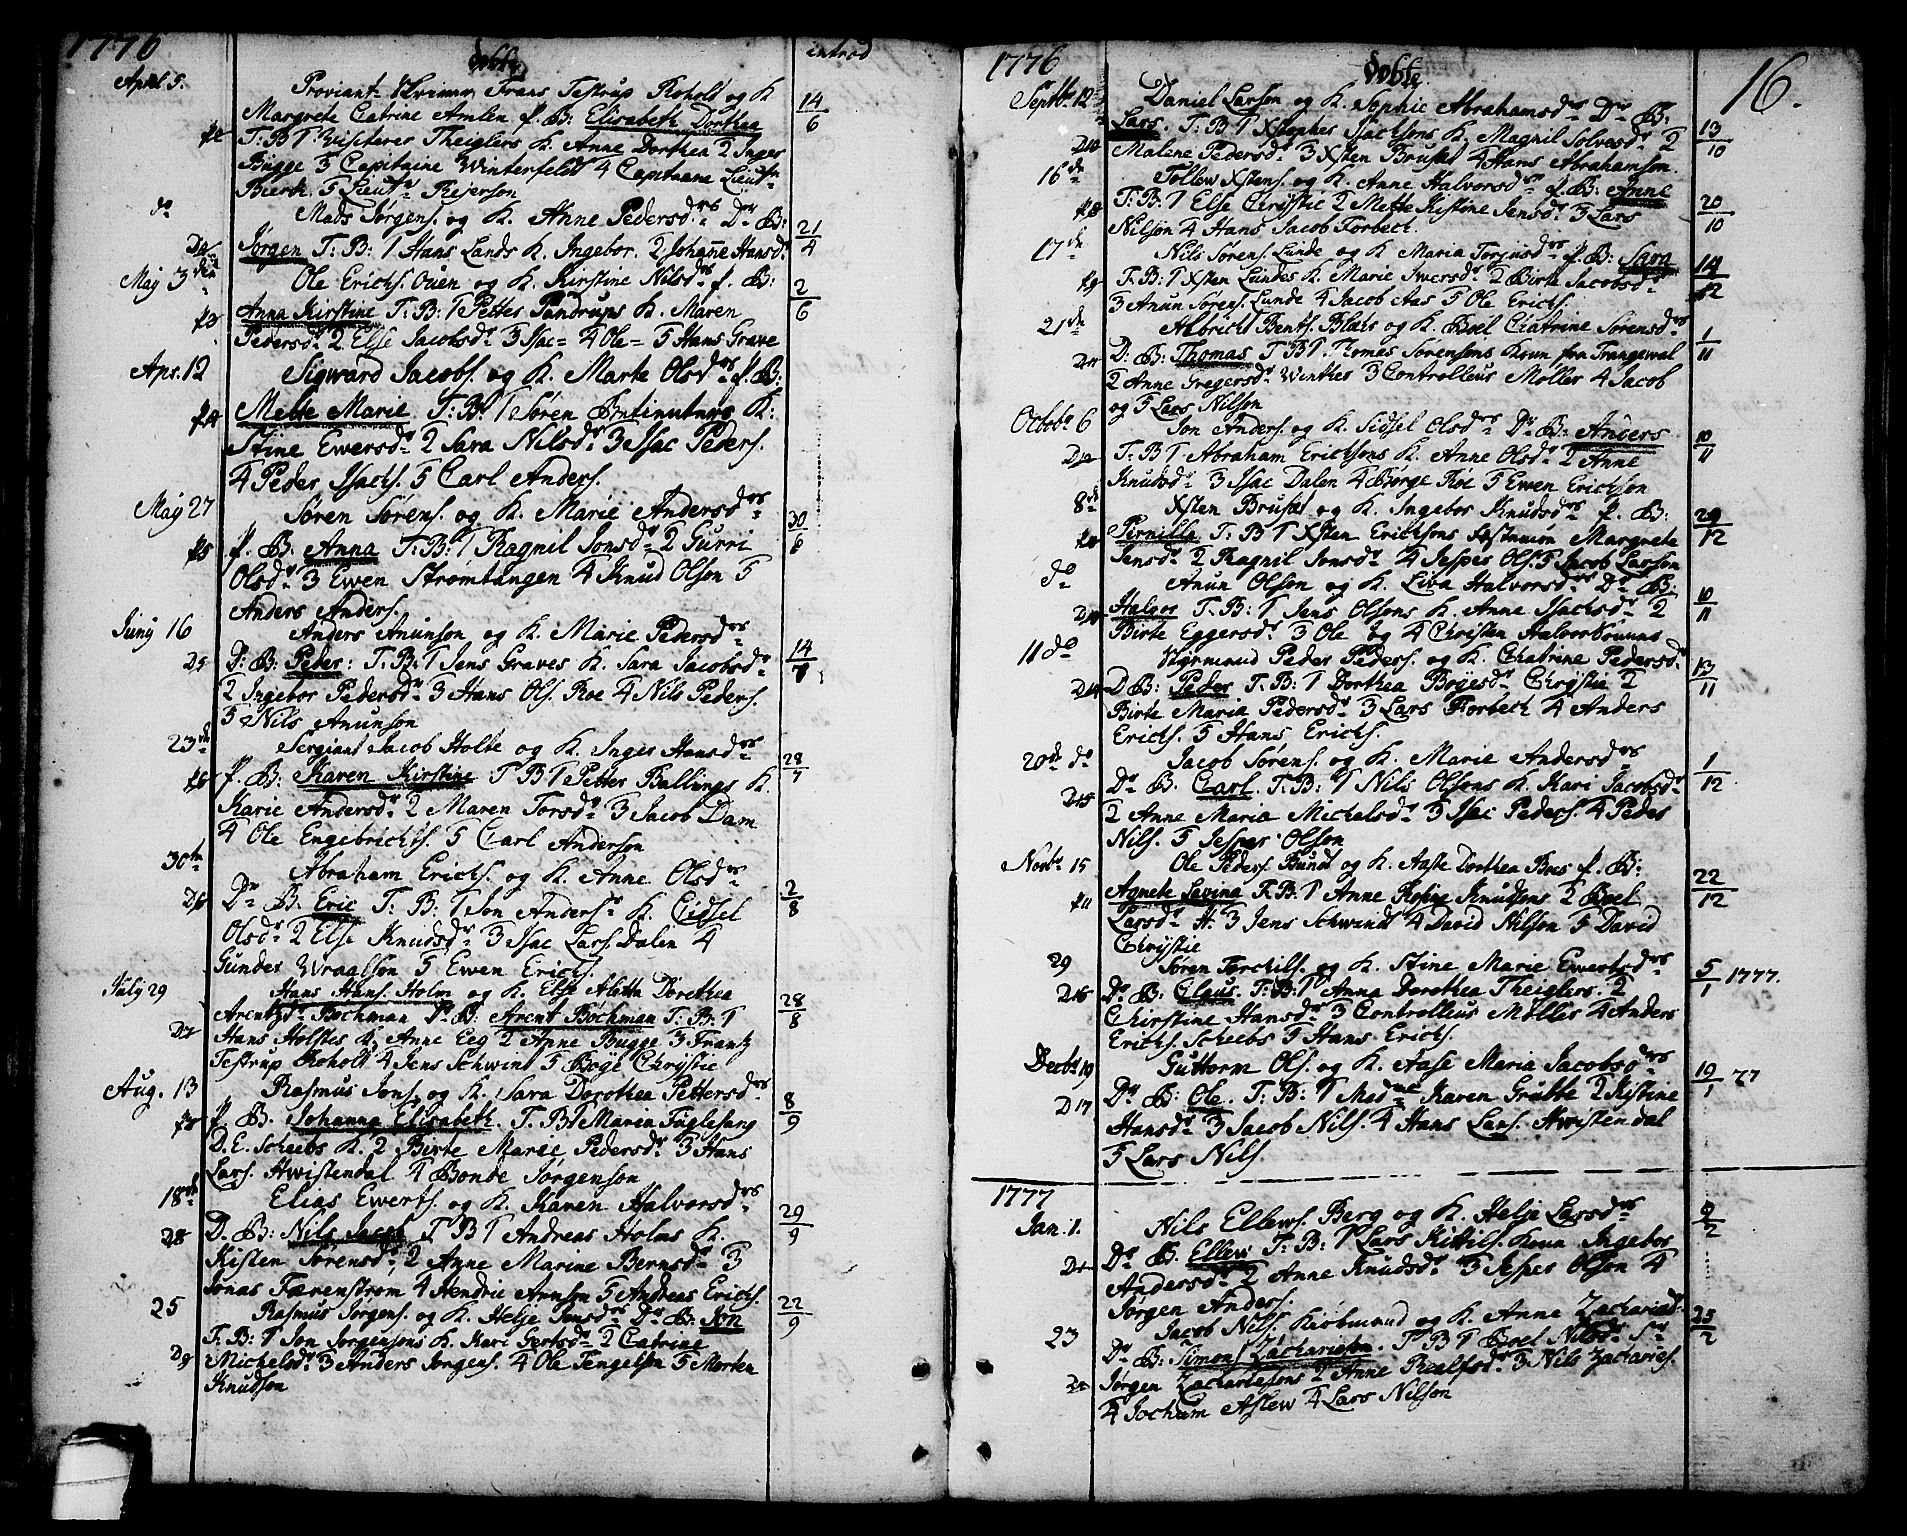 1776
døbte
introd
April 5.
Proviant Skriwer Frans Testrup Rohold og K.
Margrete Catrine Amlen p. B: Elisabeth Dorthea
14/6
p2
T: B 1 Visiterer Theiglers K. Anne Dorthea 2 Inger
Bugge 3 Capitaine Winterfeldt 4 Capitaine Lieutn
Bierk. 5 Lieutn Rejerson
do
Mads Jørgens. og K. Anne Pedersdrs Dr B:
21/4
D4
Jørgen T: B: 1 Hans Lands K. Ingebor. 2 Johañe Hansdr
May 3den
Ole Erichs. Ouen og K. Kirstine Nilsdrs p. B:
2/6
p3
Anna Kirstine T: B: 1 Petter Pandrups K. Maren
Pedersdr 2 Else Jacobsdr 3 Isac= 4 Ole= 5 Hans Grave
Apr. 12
Sigward Jacobs. og K. Marte Olsdrs p. B:
p4
Mette Marie T: B: 1 Søren K:
Stine Ewersdr 2 Sara Nilsdr 3 Isac Peders.
4 Peder Isachs. 5 Carl Anders.
May 27
Søren Sørens. og K. Marie Andersdrs
30/6
p5
p. B: Anna T: B: 1 Ragnil Jonsdr 2 Gurri
Olsdr 3 Ewen Strømtangen 4 Knud Olson 5
Anders Anders.
Junij 16
Anders Anunson og K. Marie Pedersdrs
14/7
D5
D: B: Peder: T: B: 1 Jens Graves K. Sara Jacobsdr
2 Ingebor Pedersdr 3 Hans Ols. Roe 4 Nils Peders.
5 Nils Anunson
23de
Sergiant Jacob Holte og K. Inger Hansdrs
28/7
p6
p. B: Karen Kirstine T B 1 Petter Ballings K.
Karie Andersdr 2 Maren Torsdr 3 Jacob Dam
4 Ole Engebrichts. 5 Carl Anderson
30te
Abraham Erichs. og K. Anne Olsdrs
2/8
D6
Dr B: Eric T: B: 1 Jon Anders. K. Cidsel
Olsdr 2 Else Knudsdr 3 Isac Lars. Dalen 4
Gunder Wraalson 5 Ewen Erichs.
July 29
Hans Hans. Holm og K. Else Aletta Dorethea
28/8
Arentzdr Bochman Dr B: Arent Bochman T: B: 1
D7
Hans Holstes K. Anne Eeg 2 Anne Bugge 3 Frantz
Testrup Roholt 4 Jens Schwint 5 Boÿe Chrystie
Aug. 13
Rasmus Jons. og K. Sara Dorothea Pettersdrs
8/9
p. B: Johanna Elisabeth. T. B 1 Maria Fuglesang
D. E. Scheebs K. 2 Birte Marie Pedersdr 3 Hans
Lars. Hwistendal 4 Bonde Jørgenson
18de
Elias Ewerts. og K. Karen Halvorsdrs
29/9
D8
D. B: Nils Jacob T B 1 Andreas Holms K.
Kisten Sørensdr 2 Anne Marine Bernsdr 3
Jonas Færenstrøm 4 Hendric Arnson 5 Andreas Erichs.
25
Rasmus Jørgens. og K. Helje Jensdrs Dr B: Jon
22/9
D9
T. B: 1 Jon Jørgensons K. Kari Gertsdr 2 Catrine
Michelsdr 3 Anders Jørgens. 4 Ole Tengelson 5 Morten
Knudson
1776
døbte
16.
Septbr 12
Daniel Larson og K. Sophie Abrahamsdrs Dr B:
13/10
D10
Lars. T: B 1 Xstopher Isachsons K. Magnil Solvesdr 2
Malene Pedersdr 3 Xsten Brusæt 4 Hans Abrahamson
16de
Tollew Xstens. og K. Anne Halvorsdrs p. B: Anne
20/10
p8
T: B: 1 Else Chrystie 2 Mette Kistine Jensdr 3 Lars
Nilson 4 Hans Jacob Forbech.
17de
Nils Sørens. Lunde og K. Maria Torjusdrs p. B: Sara
p9
T: B: 1 Xsten Lundes K. Marie Iwersdr 2 Birte Jacobsdr
3 Anun Sørens. Lunde 4 Jacob Aas 5 Ole Erichs.
21de
Albricht Bents. Blæis og K. Boel Chatrine Sørensdrs
1/11
D11
D: B: Thomas T B 1 Thomas Sørensons Koun fra Trangewal
2 Anne Gregersdr Winther 3 Controlleur Møller 4 Jacob
og 5 Lars Nilson
Octobr 6
Jon Anders. og K. Sidsel Olsdrs Dr B: Anders
10/11
D12
T: B 1 Abraham Erichsons K. Anne Olsdr 2 Anne
Knudsdr 3 Isac Dalen 4 Børge Roe 5 Ewen Erichson
8de
Xsten Brusæt og K. Ingebor Knudsdrs p. B:
29/12
Pernilla T: B 1 Xsten Erichsons Margrete
Jensdr 2 Ragnil Jonsdr 4 Jesper Ols. 5 Jacob Larson
do
Anun Olson og K. Liva Halvorsdrs Dr B:
10/11
Halvor T: B: 1 Jens Olsons K. Anne Isachsdr 2
Birte Eggersdr 3 Ole og 4 Christen Halvorsønns
11 do
Styrmand Peder Peders. og K. Chatrine Pedersdr
13/11
D14
D B: Peder T: B: 1 Dorthea Boyesdr Chrystie 2
Birte Maria Pedersdr 3 Lars Forbech 4 Anders
Erichs. 5 Hans Erichs.
20de do
Jacob Sørens. og K. Marie Andersdrs
1/12
D15
Dr B. Carl. T: B: 1 Nils Olsons K. Kari Jacobsdr
2 Anne Maria Michelsdr 3 Isac Peders. 4 Peder
Nils. 5 Jesper Olson
Novbr 15
Ole Peders. Bundt og K. Aaste Dorthea Boes p. B:
22/12
p11
Agnete Lavina T: B: 1 Anne Knudsens 2 Boel
Larsdr H. 3 Jens Schwindt 4 David Nilson 5 David
Chrystie
29
Søren Torchils. og K. Stine Marie Ewertsdrs
5/1 1777.
D16
Dr B: Claus. T: B: 1 Anna Dorethea Theiglers 2
Chirstine Hansdr 3 Controlleur Møller 4 Anders
Erichs. Scheebs 5 Hans Erichs.
Decbr 19
Guttorm Ols. og K. Aase Maria Jacobsdrs
19/1 77
D17
Dr B: Ole. T: B: 1 Madme Karen Grubbe 2 Kistine
Hansdr 3 Jacob Nils. 4 Hans Lars. Hwistendal
5 Lars Nils.
1777
Jan. 1.
Nils Ellews. Berg og K. Helje Larsdrs
9/2
D1
Dr B. Ellew T: B: 1 Lars Kittils. Koun Ingebor
Andersdr 2 Anne Knudsdr 3 Jesper Olson 4
Jørgen Anders.
23
Jacob Nils. Kiøbmand og K. Anne Zachariædr.
25/2
D2
Dr B: Simon Zachariæson. T B 1 Boel Nilsdr Sr
Jørgen Zachariæsons 2 Anne Rælfsdr 3 Nils Zacharies.
4 Jochum Aslew 4 Lars Nilson